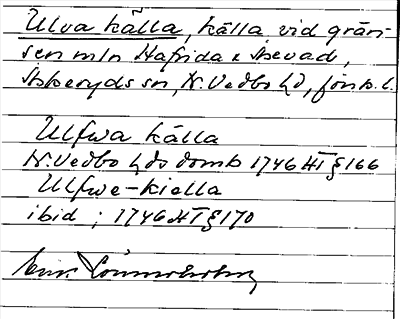 Ulva källa, källa vid grän-
sen mln Hafrida & Skevad,
Askeryds sn, N. Vedbo hd, Jönk. l.
Ulfwa källa
N. Vedbo hds domb 1746 HT § 166
Ulfwe-kiella
ibid; 1746 HT § 170